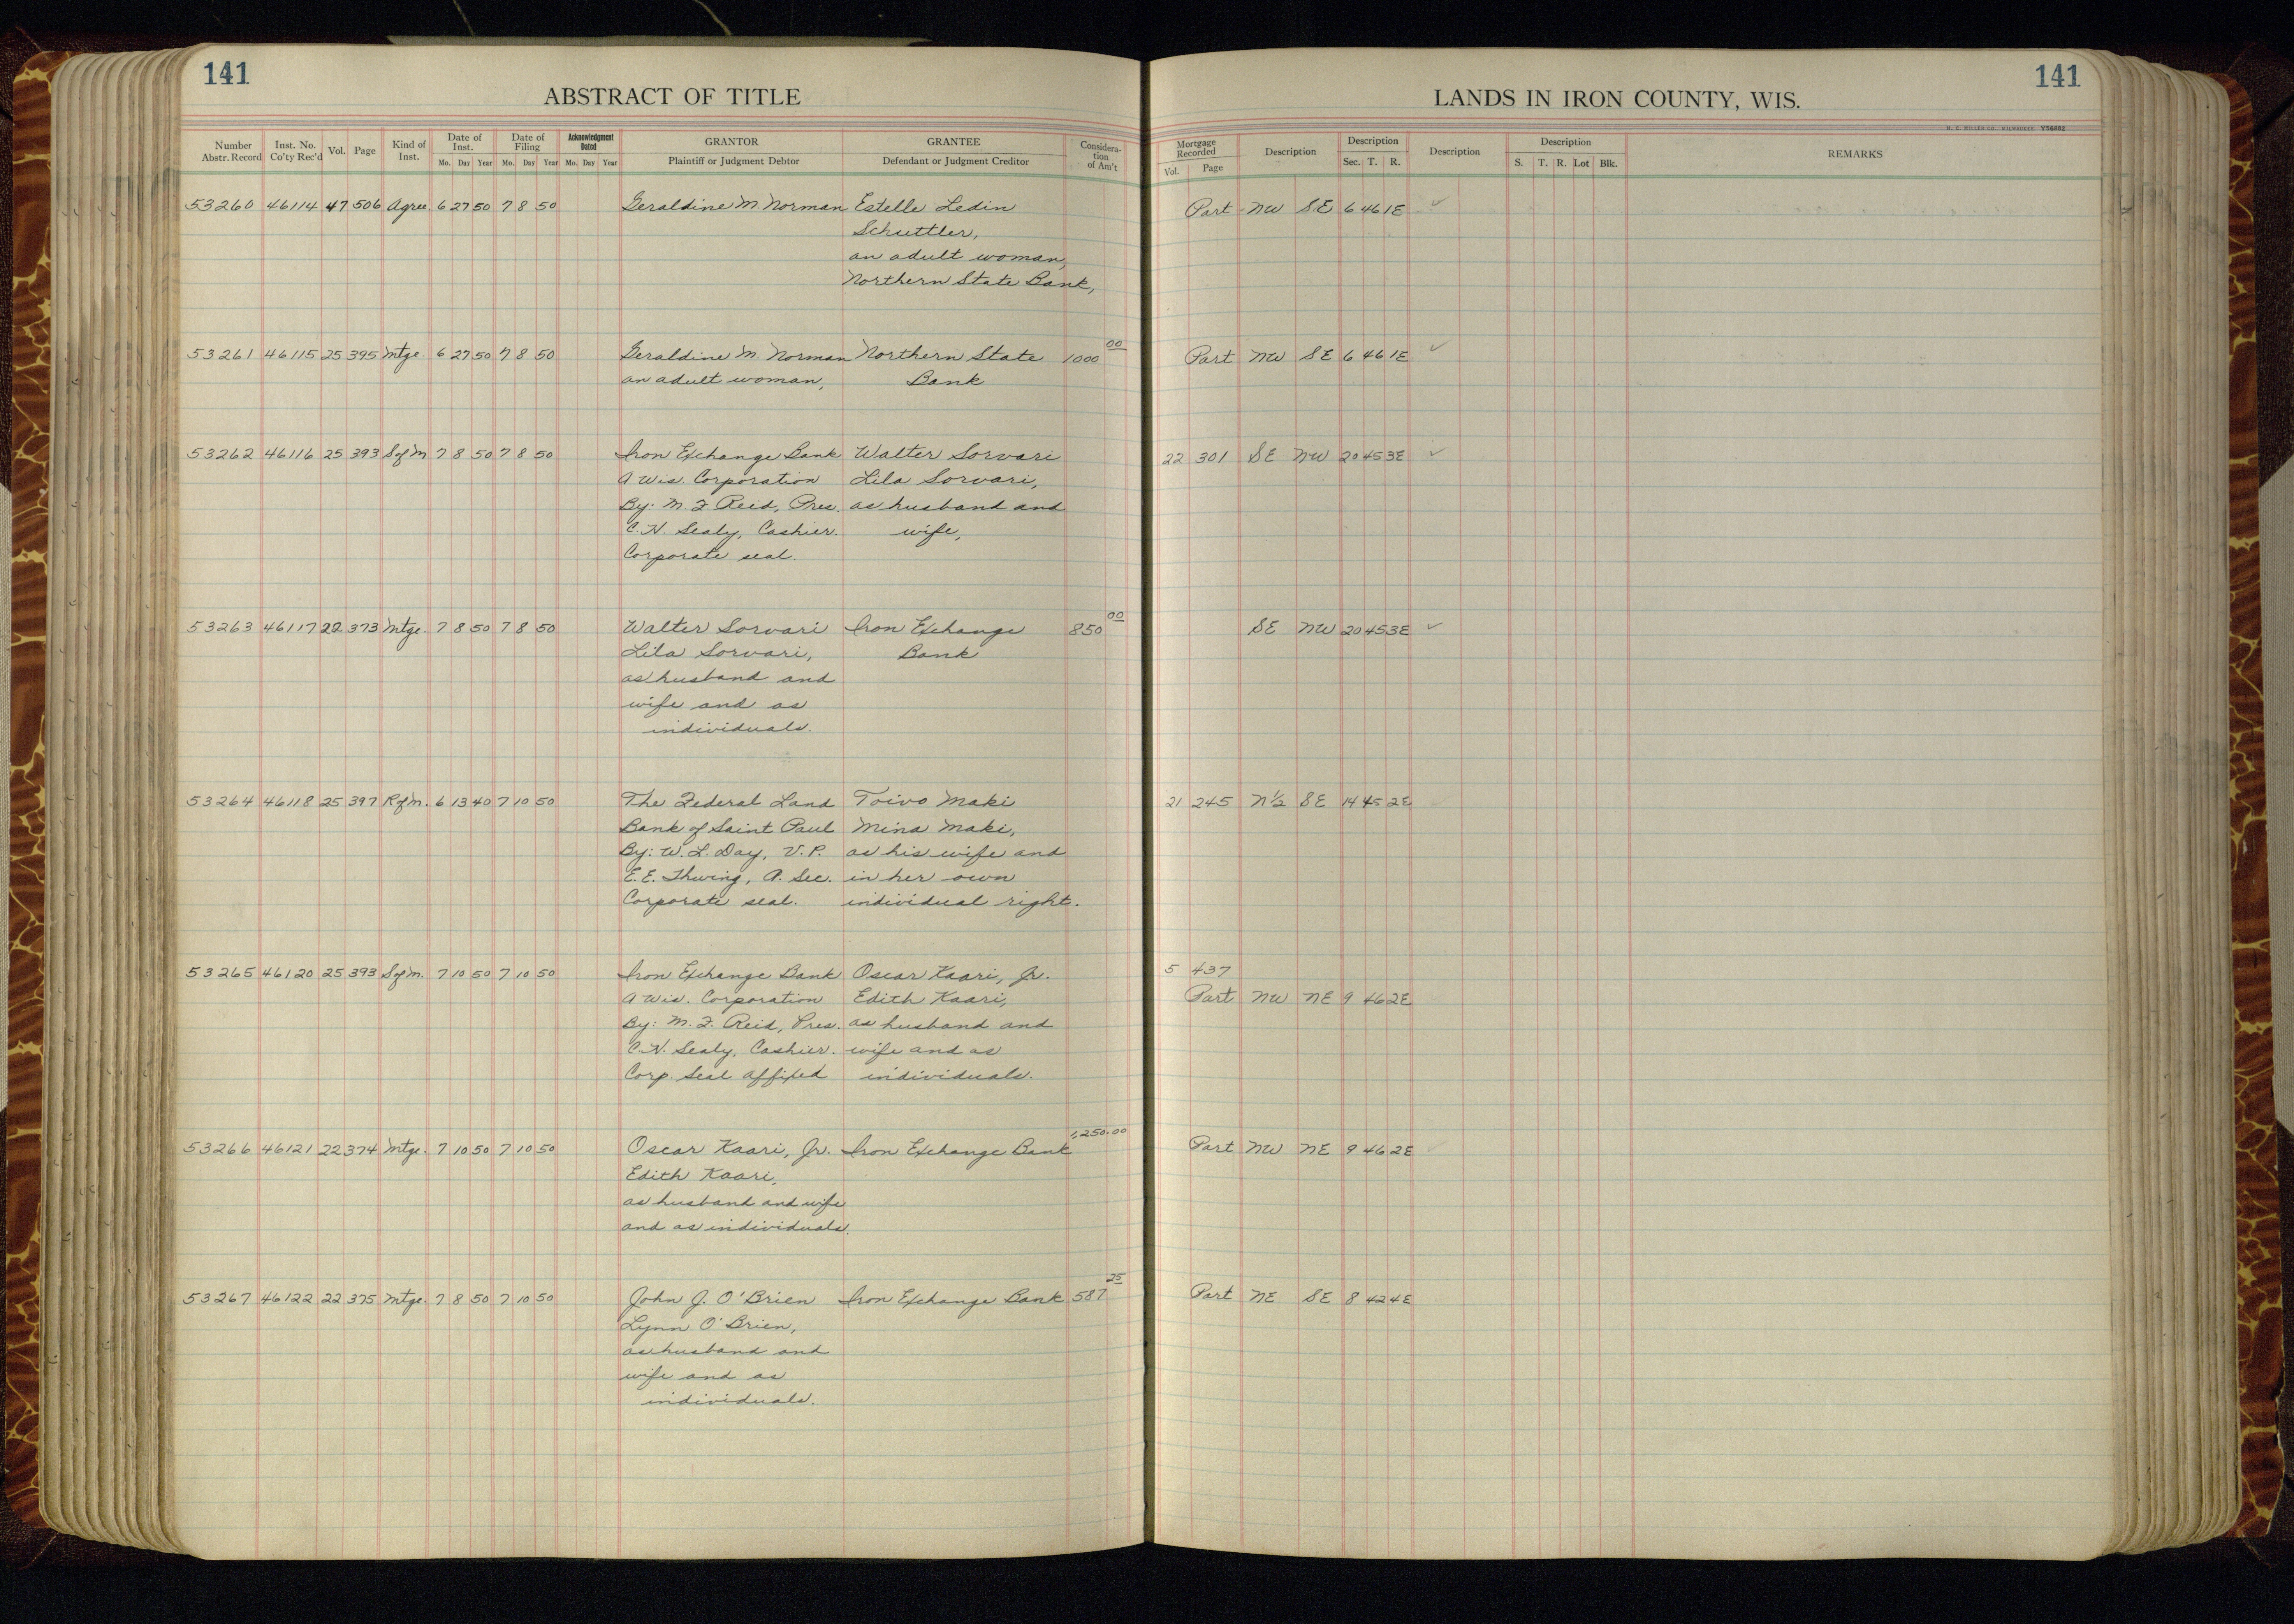 141
ABSTRACT OF TITLE
Number Abstr. Record Inst. No. Co'ty Rec'd Vol. Page Kind of Inst. Date of Inst. Mo. Day Year Date of Filing Mo. Day Year Acknowledgment Dated Mo. Day Year GRANTOR Plaintiff or Judgment Debtor GRANTEE Defendant or Judgment Creditor Considera-tion of Am't
53260 46114 47 506 Agree 6 27 50 7 8 50 Geraldine M. Norman Estelle Ledin
Schuttler,
an adult woman,
Northern State Bank,
53261 46115 25 395 Mtge. 6 27 50 7 8 50 Geraldine M. Norman Northern State 1000 00
an adult woman, Bank
53262 46116 25 393 S of M 7 8 50 7 8 50 Iron Exchange Bank Walter Sorvari
A Wis. Corporation Lila Sorvari,
By: M. F. Reid, Pres. as husband and
C. N. Sealy, Cashier. wife,
Corporate seal.
53263 46117 22 373 Mtge. 7 8 50 7 8 50 Walter Sorvari Iron Exchange 850 00
Lila Sorvari, Bank
as husband and
wife and as
individuals.
53264 46118 25 397 R of m. 6 13 40 7 10 50 The Federal Land Toivo Maki
Bank of Saint Paul Mina Maki,
By: W. L. Day, V. P. as his wife and
E. E. Thwing, A. Sec. in her own
Corporate seal. individual right.
53265 46120 25 393 S of m. 7 10 50 7 10 50 Iron Exchange Bank Oscar Kaari, Jr.
A Wis. Corporation Edith Kaari,
By: M. F. Reid, Pres. as husband and
C. N. Sealy, Cashier. wife and as
Corp. Seal affixed individuals.
53266 46121 22 374 Mtge. 7 10 50 7 10 50 Oscar Kaari, Jr. Iron Exchange Bank 1,250.00
Edith Kaari,
as husband and wife
and as individuals.
53267 46122 22 375 Mtge. 7 8 50 7 10 50 John J. O'Brien Iron Exchange Bank 587 25
Lynn O'Brien,
as husband and
wife and as
individuals.
141
LANDS IN IRON COUNTY, WIS.
H. C. MILLER CO., MILWAUKEE Y56882
Mortgage Recorded Vol. Page Description Description Sec. T. R. Description Description S. T. R. Lot Blk. REMARKS
Part NW SE 6 46 1E ✓
Part NW SE 6 46 1E ✓
22 301 SE NW 20 45 3E ✓
SE NW 20 45 3E ✓
21 245 N½ SE 14 45 2E
5 437
Part NW NE 9 46 2E
Part NW NE 9 46 2E
Part NE SE 8 42 4E